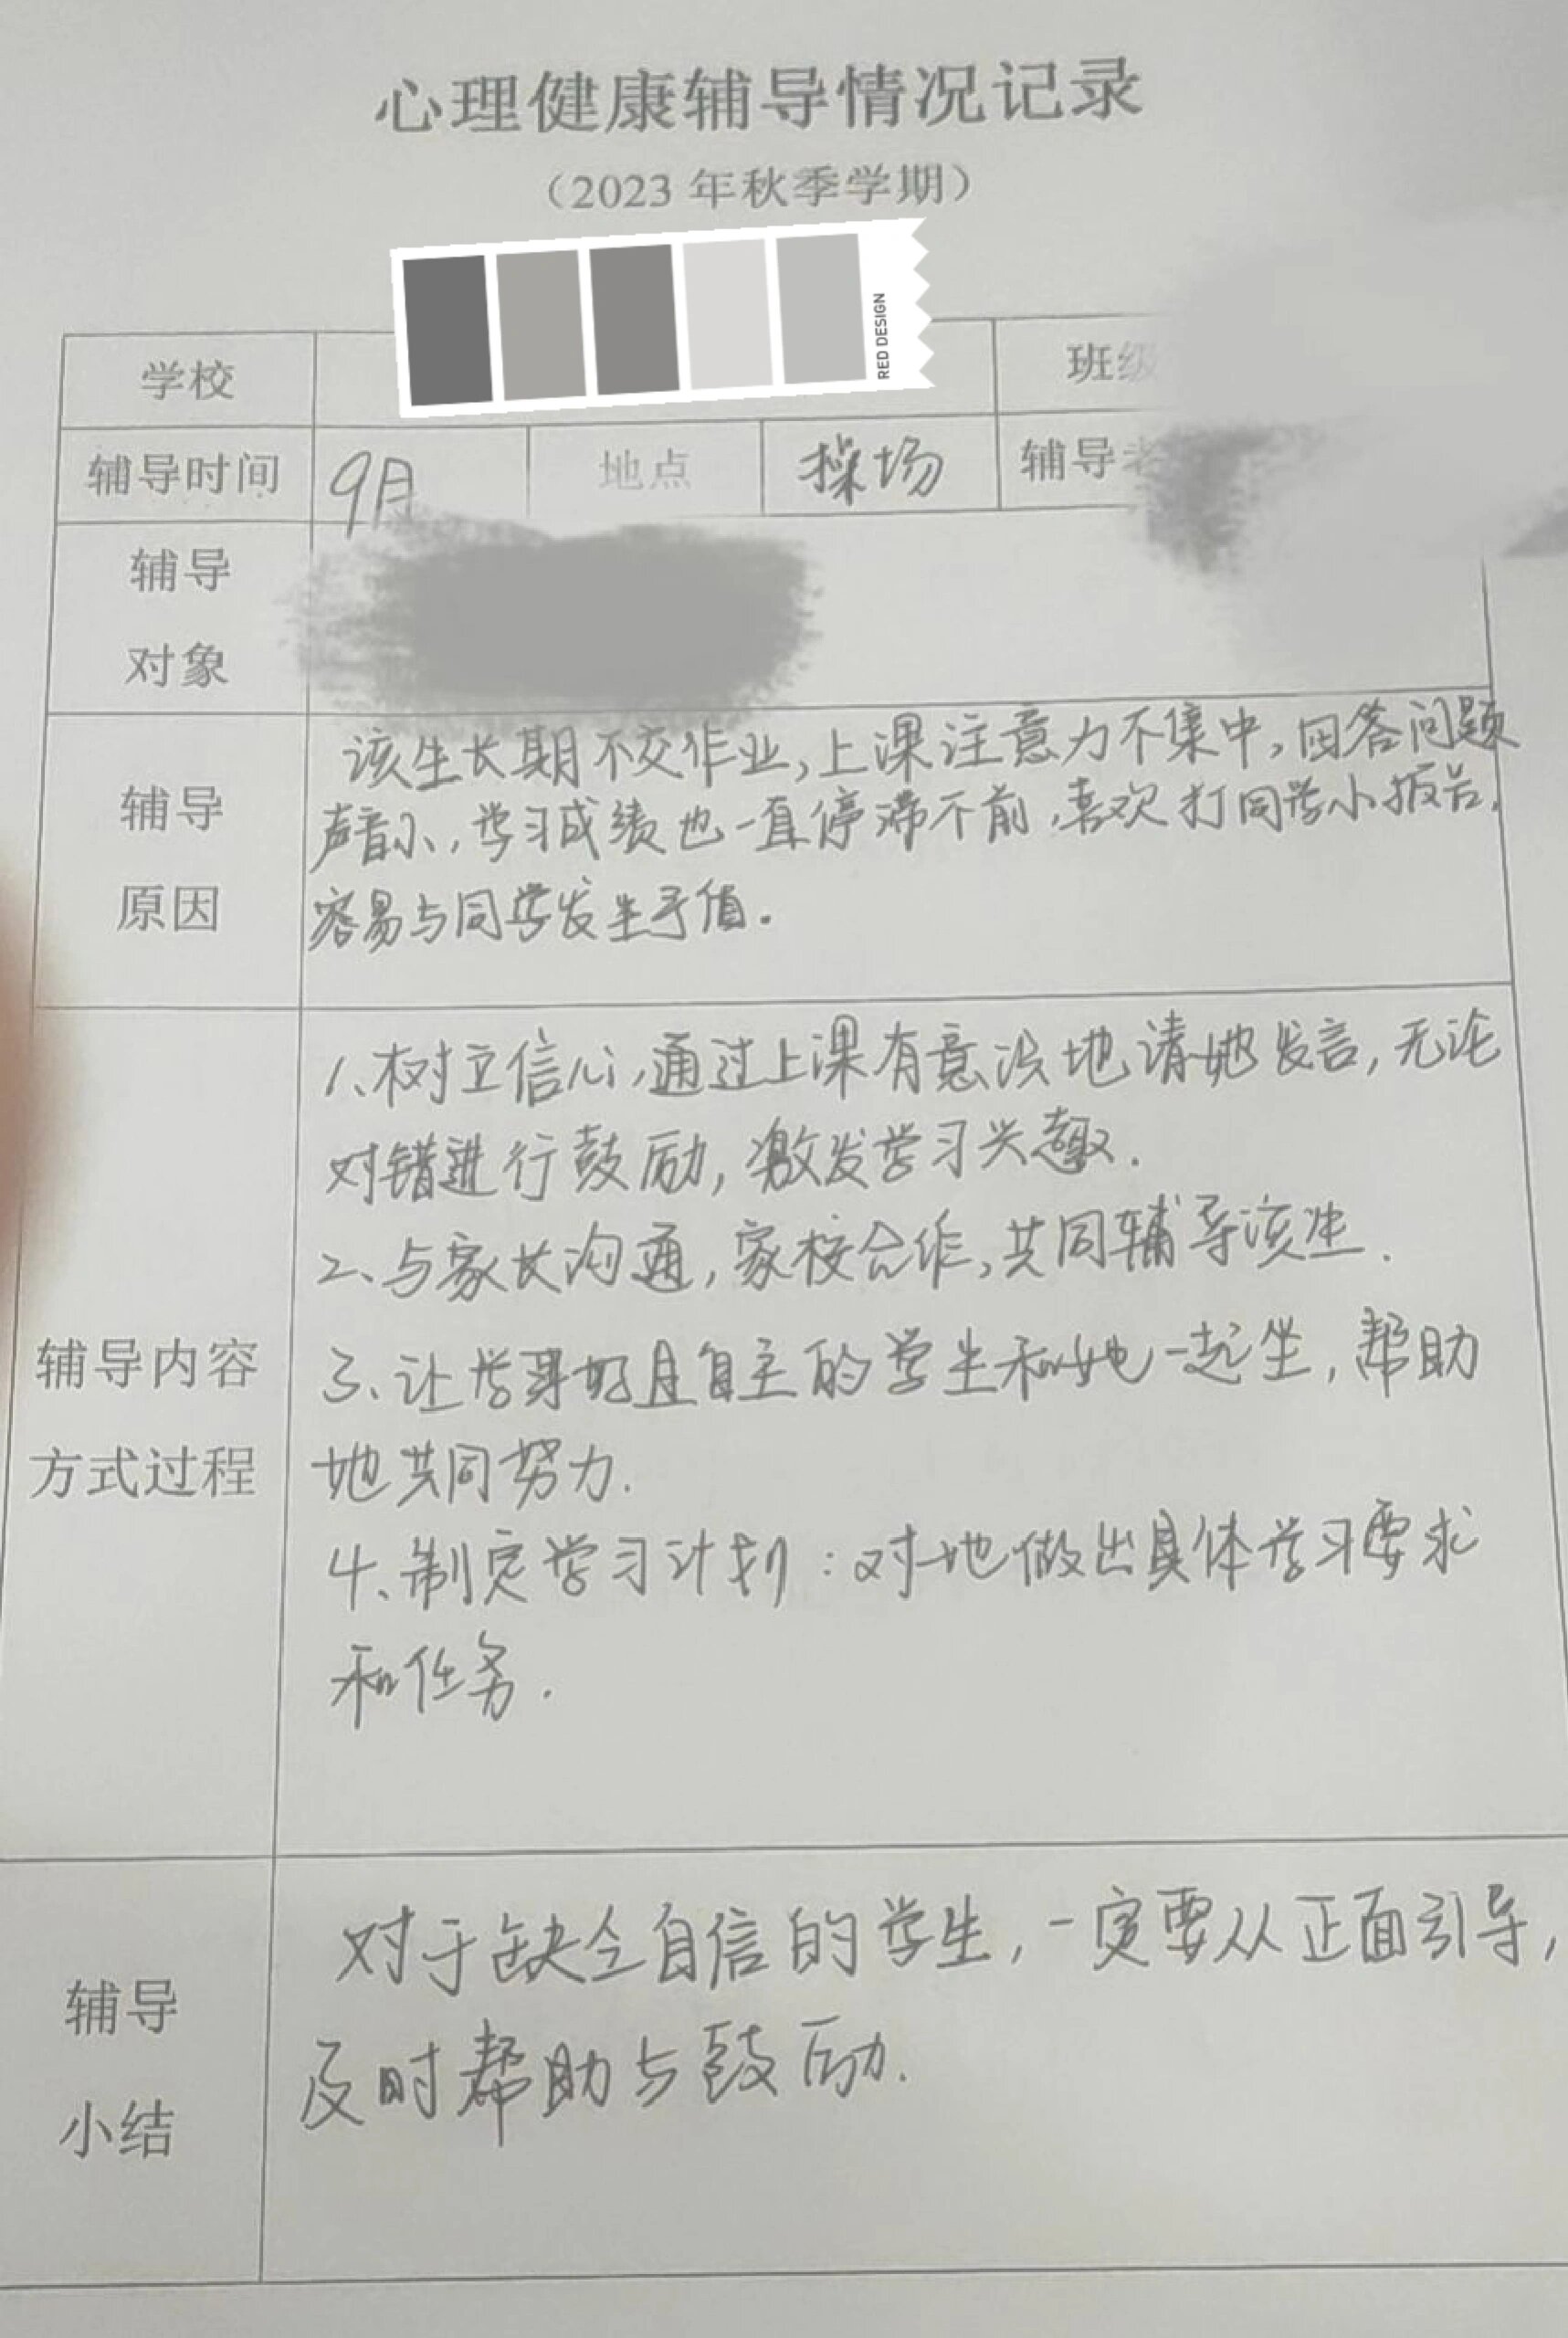 心理健康辅导情况记录
（2023 年秋季学期）
RED DESIGN
学校 班级
辅导时间 9月 地点 操场 辅导者
辅导
对象
辅导
原因
该生长期不交作业,上课注意力不集中,回答问题
声音小,学习成绩也一直停滞不前,喜欢打同学小报告,
容易与同学发生矛
辅导内容
方式过程
1、树立信心,通过上课有意识地请她发言,无论
对错进行鼓励,激发学习兴趣.
2、与家长沟通,家校合作,共同辅导该生.
3、让学习好且自主的学生和她一起坐,帮助
她共同努力.
4、制定学习计划:对她做出具体学习要求
和任务.
辅导
小结
对于缺乏自信的学生,一定要从正面引导,
及时帮助与鼓励.